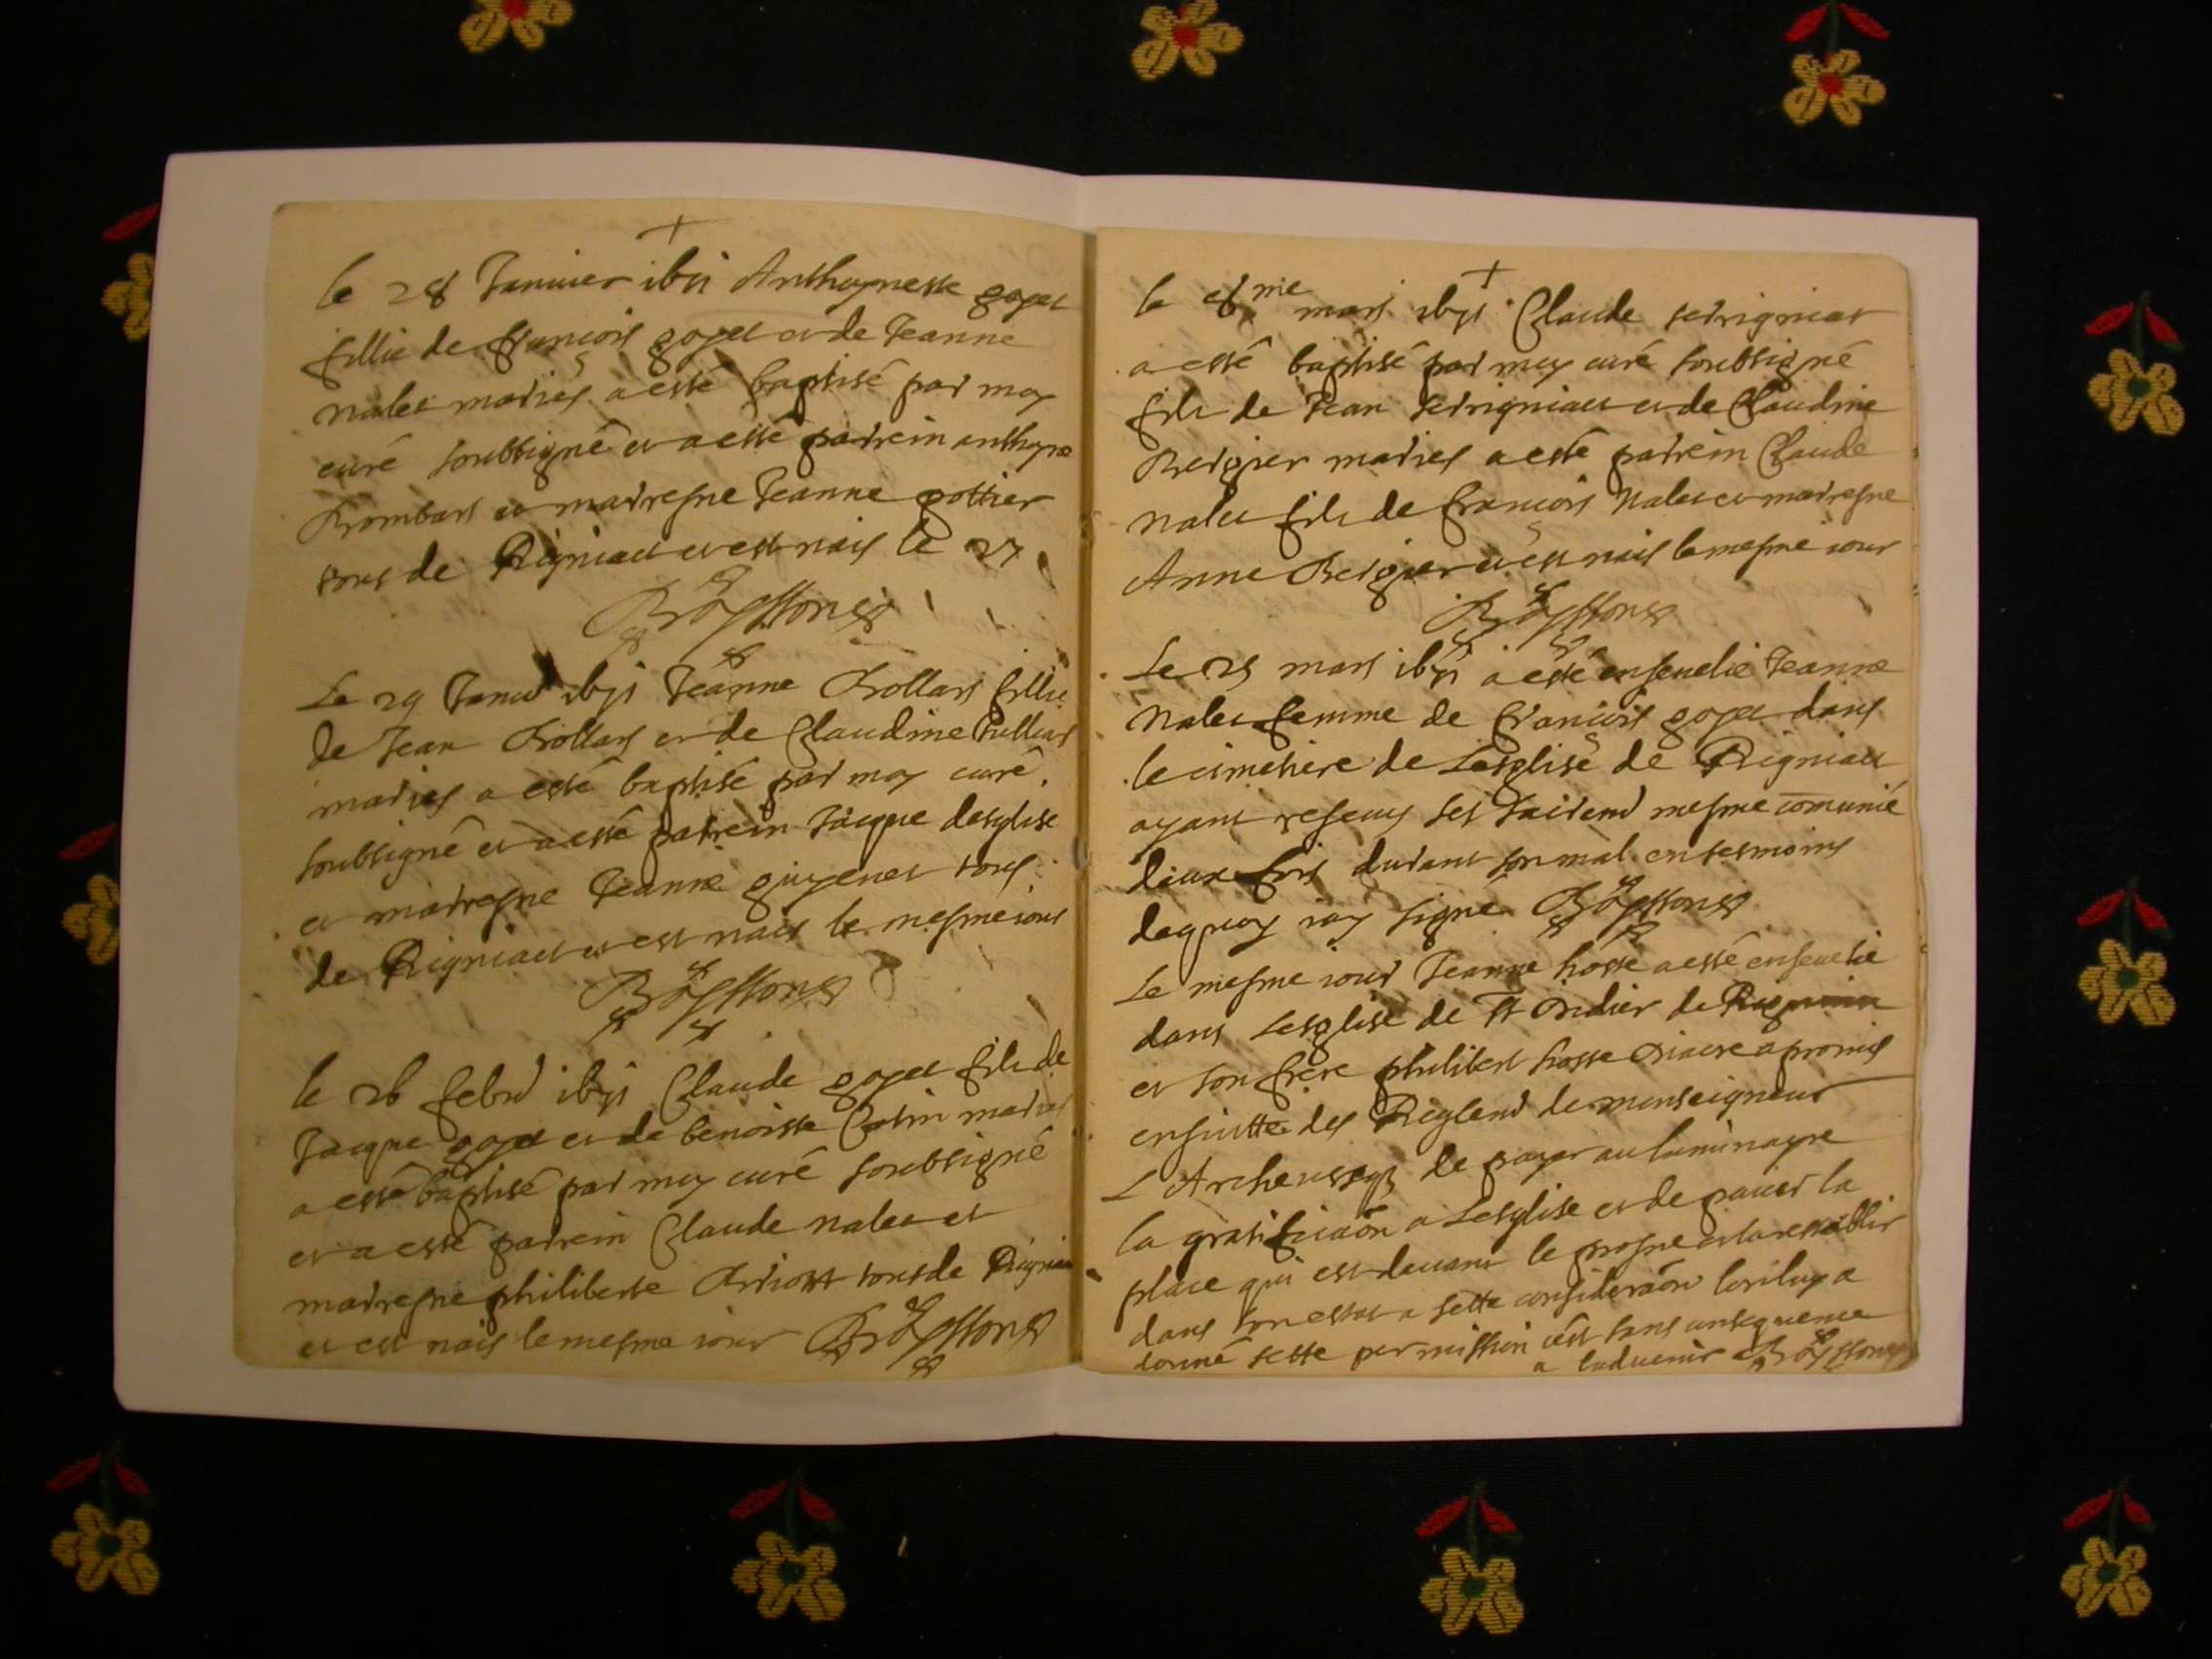 le 28 Januier 1671 Anthoynesse goyet
fillie de francois goyet et de Jeanne
nalet mariés a esté baptisé par moy
curé soubsigné et a esté parrein anthoyne
et marresne Jeanne gottier
tous de Rigniact et est nais le 27
Le 29 Janu 1671 Jeanne fillie
de Jean et de Claudine
mariés a esté baptisé par moy curé
soubsigné et a esté parrein Jacque desglise
et marresne Jeanne tous
de Rigniact et est nais le mesme iour
le 26 febr 1671 Claude goyet fils de
Jacque goyet et de benoiste Catin mariés
a esté baptisé par moy curé soubsigné
et a esté parrein Claude nalet et
marresne philiberte tous de Rigniact
et est nais le mesme iour
le 8me mars 1671 Claude
a esté baptisé par moy curé soubsigné
fils de Jean et de Claudine
Bergier mariés a esté parrein Claude
nalet fils de francois Nalet et marresne
Anne Bergier et est nais le mesme iour
Le 25 mars 1671 a esté enseuelie Jeanne
Nalet femme de francois goyet dans
le cimetiere de Lesglise de Rigniact
ayant reseu ses mesme comunié
deux fois durant son mal en tesmoins
dequoy iay signé
Le mesme iour Jeanne hosse a esté enseuelie
dans Lesglise de St Didier de
et son frere philibert hosse diacre a promis
ensuitte des Reglend de monseigneur
L'Archeuesque de payer au luminayre
la gratificaôn a Lesglise et de pauer la
place qui est deuant le prosne et la restablir
dans son estat a sette consideraôn
donné sette permission cest sans consequence
a laduenir